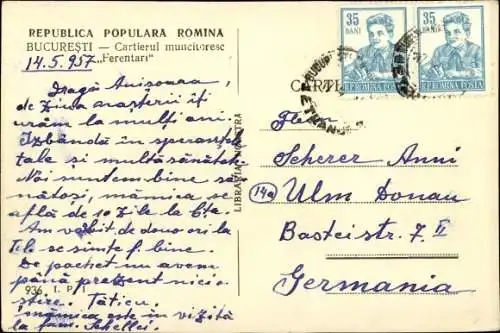 REPUBLICA POPULARA ROMINA
BUCUREȘTI — Cartierul muncitoresc
„Ferentari"
14.5.957
Dragă Anișoara,
de Ziua nașterii îți
urăm la mulți ani.
Izbândă în speranțele
tale și multă sănătate.
Noi suntem bine să-
nătoși, mămica se
află de 10 zile la
Am vorbit de două ori la
Tel. se simte f. bine.
De pachet nu avem
până prezent nici o
știre. Tăticu.
mămica este în vizită
la fam.
936 I. P. 1
LIBRĂRIA NOASTRĂ
35
BANI
R.P. ROMINA POSTA
35
BANI
R.P. ROMINA POSTA
CARTE
Scherer Anni
14a Ulm Donau
Basteistr. 7. II
Germania